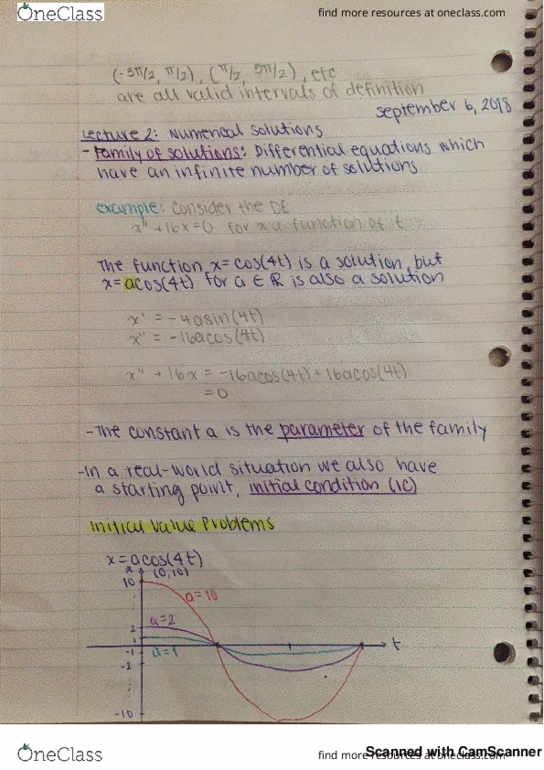 OneClass
find more resources at oneclass.com
(-3π/2, π/2), (π/2, 5π/2), etc
are all valid intervals of definition
september 6, 2018
Lecture 2: Numerical solutions
- Family of solutions: Differential equations which
have an infinite number of solutions
example: consider the DE
x" + 16x = 0 for x a function of t
The function x = cos(4t) is a solution, but
x = acos(4t) for a ∈ ℝ is also a solution
x' = -4asin(4t)
x" = -16acos(4t)
x" + 16x = -16acos(4t) + 16acos(4t)
= 0
- The constant a is the parameter of the family
- In a real-world situation we also have
a starting point, initial condition (IC)
Initial Value Problems
x = acos(4t)
x
(0,10)
10
a=10
a=2
2
1
-1
a=1
t
-2
-10
OneClass
find more resources at oneclass.com
Scanned with CamScanner